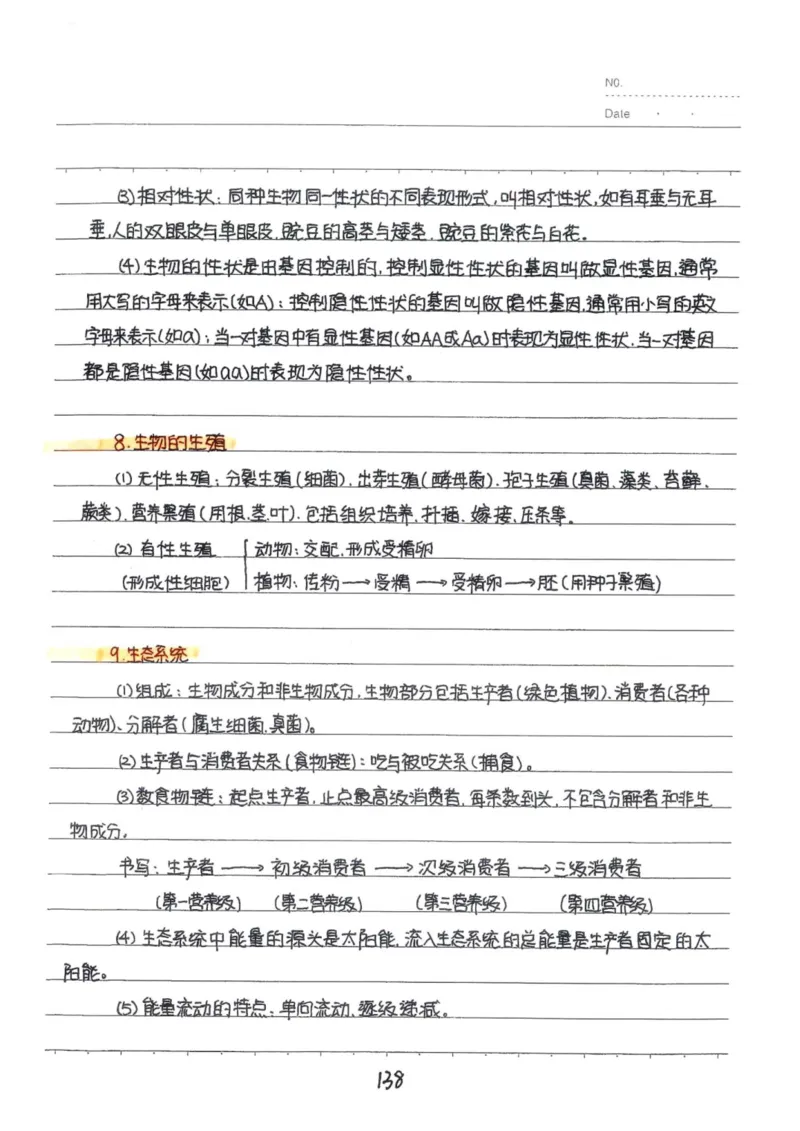 NO.
Date
(3)相对性状：同种生物同一性状的不同表现形式，叫相对性状，如有耳垂与无耳
垂，人的双眼皮与单眼皮，豌豆的高茎与矮茎，豌豆的紫花与白花。
(4)生物的性状是由基因控制的，控制显性性状的基因叫做显性基因，通常
用大写的字母来表示(如A)；控制隐性性状的基因叫做隐性基因，通常用小写的英文
字母来表示(如a)；当一对基因中有显性基因(如AA或Aa)时表现为显性性状，当一对基因
都是隐性基因(如aa)时表现为隐性性状。
8.生物的生殖
(1)无性生殖：分裂生殖(细菌)，出芽生殖(酵母菌)，孢子生殖(真菌、藻类、苔藓、
蕨类)，营养繁殖(用根、茎、叶)，包括组织培养，扦插，嫁接，压条等。
(2)有性生殖 动物：交配，形成受精卵
(形成性细胞) 植物：传粉→受精→受精卵→胚(用种子繁殖)
9.生态系统
(1)组成：生物成分和非生物成分，生物部分包括生产者(绿色植物)，消费者(各种
动物)、分解者(腐生细菌，真菌)。
(2)生产者与消费者关系(食物链)：吃与被吃关系(捕食)。
(3)数食物链：起点生产者，止点最高级消费者，每条数到头，不包含分解者和非生
物成分。
书写：生产者→初级消费者→次级消费者→三级消费者
(第一营养级) (第二营养级) (第三营养级) (第四营养级)
(4)生态系统中能量的源头是太阳能，流入生态系统的总能量是生产者固定的太
阳能。
(5)能量流动的特点：单向流动，逐级递减。
138